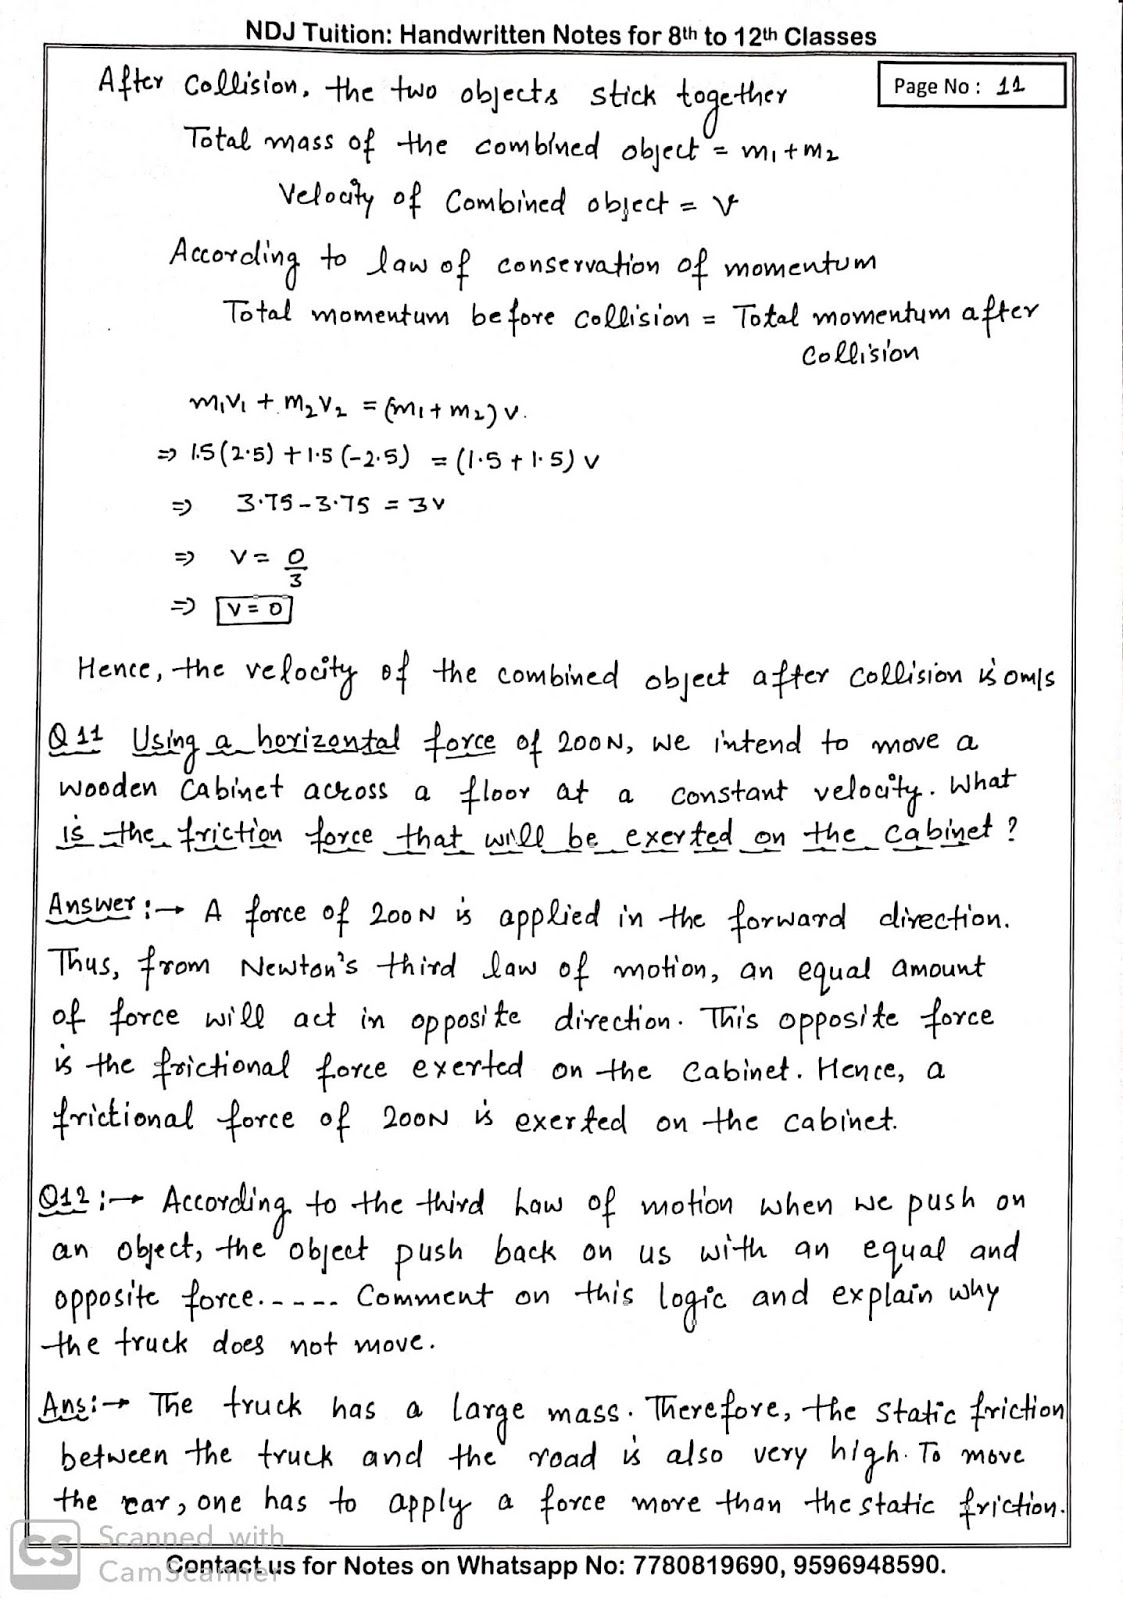 NDJ Tuition: Handwritten Notes for 8th to 12th Classes
Page No : 11
After Collision, the two objects stick together
Total mass of the combined object = m₁+m₂
Velocity of Combined object = v
According to law of conservation of momentum
Total momentum before collision = Total momentum after
Collision
m₁v₁ + m₂v₂ = (m₁+m₂) v.
⇒ 1.5(2.5) + 1.5 (-2.5) = (1.5 + 1.5) v
⇒ 3.75 - 3.75 = 3v
⇒ v = 0/3
⇒ v = 0
Hence, the velocity of the combined object after collision is 0m/s
Q 11 Using a horizontal force of 200N, we intend to move a
wooden Cabinet across a floor at a constant velocity. What
is the friction force that will be exerted on the cabinet ?
Answer :→ A force of 200N is applied in the forward direction.
Thus, from Newton's third law of motion, an equal amount
of force will act in opposite direction. This opposite force
is the frictional force exerted on the cabinet. Hence, a
frictional force of 200N is exerted on the cabinet.
Q12 :→ According to the third Law of motion when we push on
an object, the object push back on us with an equal and
opposite force.----- Comment on this logic and explain why
the truck does not move.
Ans:→ The truck has a large mass. Therefore, the static friction
between the truck and the road is also very high. To move
the car, one has to apply a force more than the static friction.
CS Scanned with
CamScanner
Contact us for Notes on Whatsapp No: 7780819690, 9596948590.